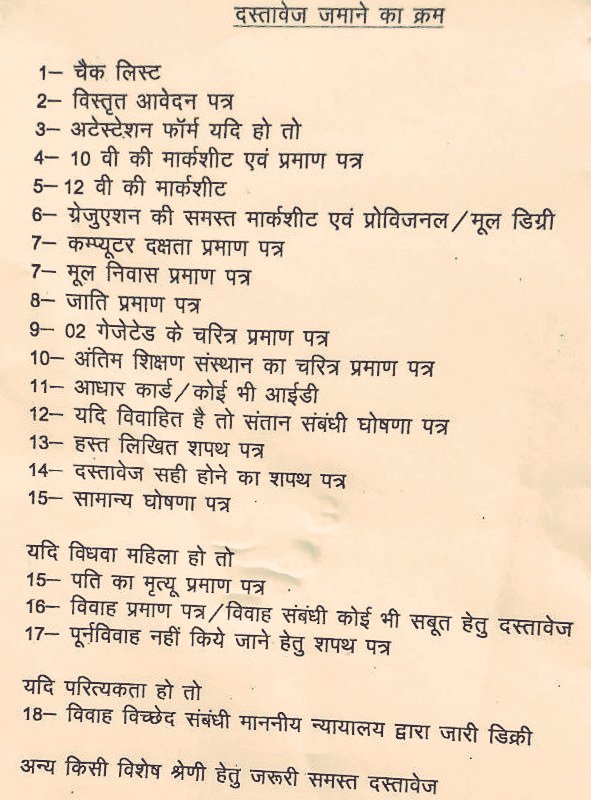 दस्तावेज जमाने का क्रम
1– चैक लिस्ट
2– विस्तृत आवेदन पत्र
3– अटेस्टेशन फॉर्म यदि हो तो
4– 10 वी की मार्कशीट एवं प्रमाण पत्र
5–12 वी की मार्कशीट
6– ग्रेजुएशन की समस्त मार्कशीट एवं प्रोविजनल/मूल डिग्री
7– कम्प्यूटर दक्षता प्रमाण पत्र
7– मूल निवास प्रमाण पत्र
8– जाति प्रमाण पत्र
9– 02 गेजेटेड के चरित्र प्रमाण पत्र
10– अंतिम शिक्षण संस्थान का चरित्र प्रमाण पत्र
11– आधार कार्ड/कोई भी आईडी
12– यदि विवाहित है तो संतान संबंधी घोषणा पत्र
13– हस्त लिखित शपथ पत्र
14– दस्तावेज सही होने का शपथ पत्र
15– सामान्य घोषणा पत्र
यदि विधवा महिला हो तो
15– पति का मृत्यू प्रमाण पत्र
16– विवाह प्रमाण पत्र/विवाह संबंधी कोई भी सबूत हेतु दस्तावेज
17– पूर्नविवाह नहीं किये जाने हेतु शपथ पत्र
यदि परित्यकता हो तो
18– विवाह विच्छेद संबंधी माननीय न्यायालय द्वारा जारी डिक्री
अन्य किसी विशेष श्रेणी हेतु जरूरी समस्त दस्तावेज